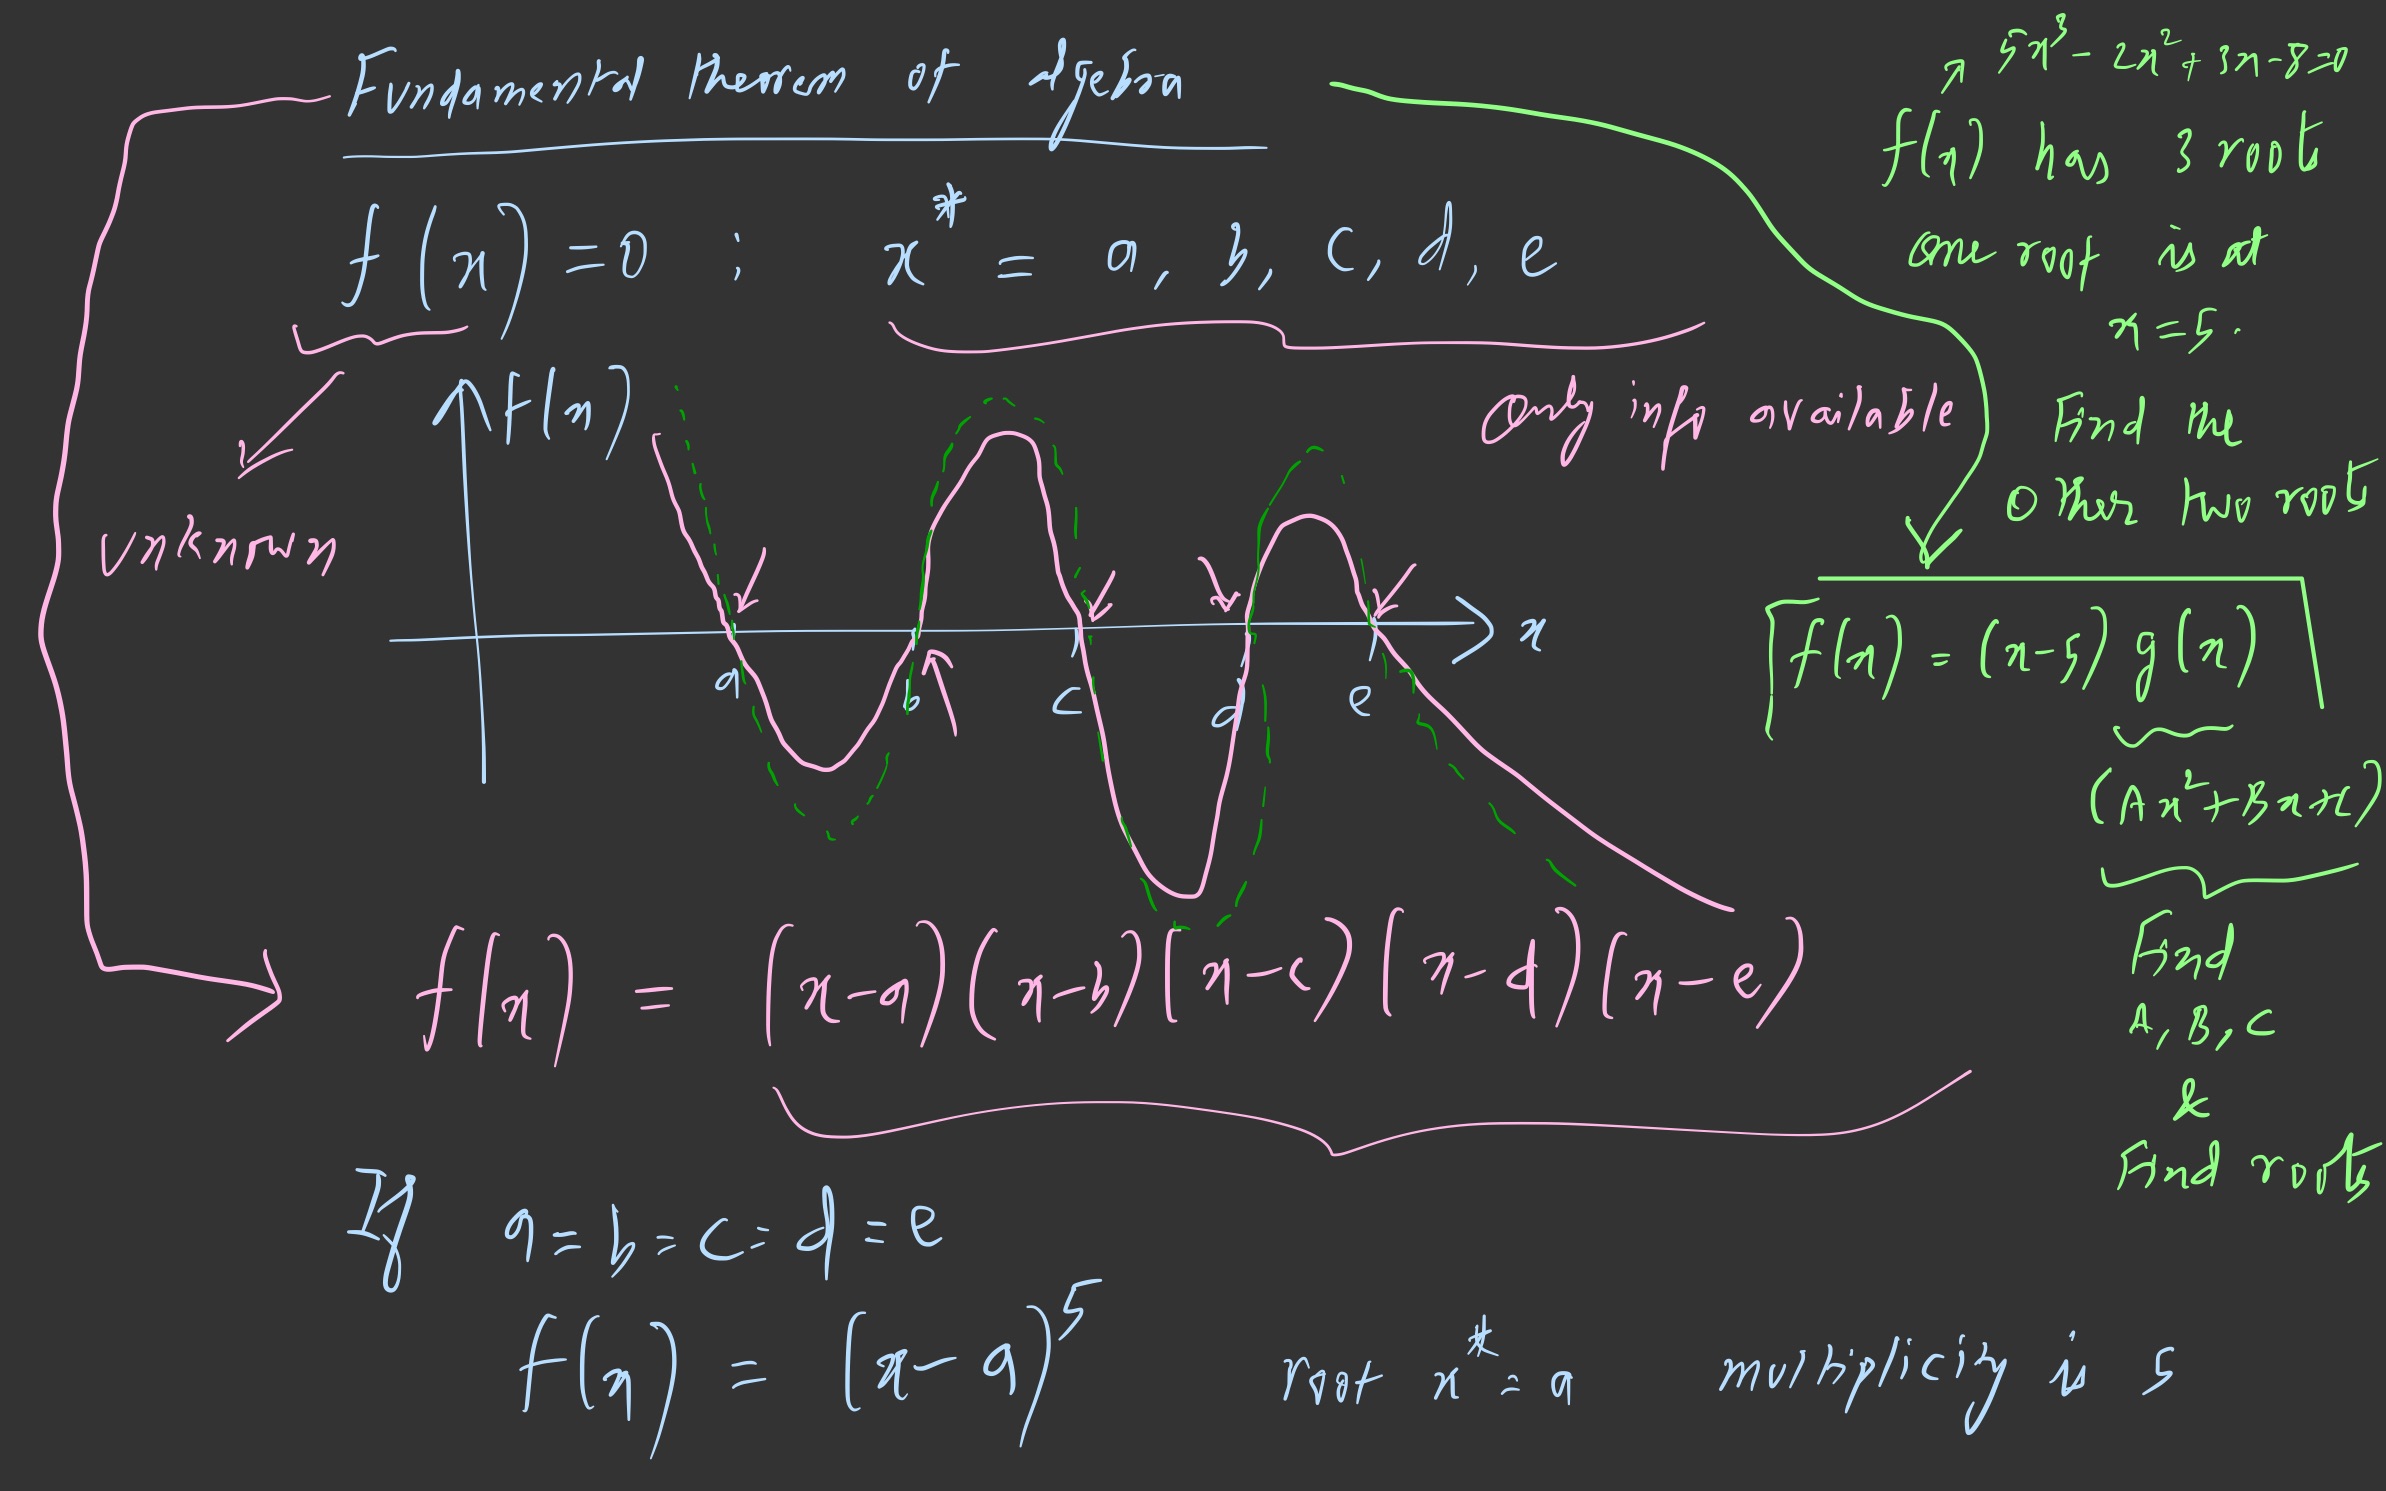 Fundamental theorem of algebra
f(x) = 0 ; x* = a, b, c, d, e
unknown
only info available
f(x)
x
a b c d e
f(x) = (x-a)(x-b)(x-c)(x-d)(x-e)
If a = b = c = d = e
f(x) = (x-a)^5 root x* = a multiplicity is 5
5x³ - 2x² + 3x - 8 = 0
f(x) has 3 root
one root is at
x = 5.
Find the
other two roots
f(x) = (x-5) g(x)
(Ax² + Bx + C)
Find
A, B, C
&
Find roots